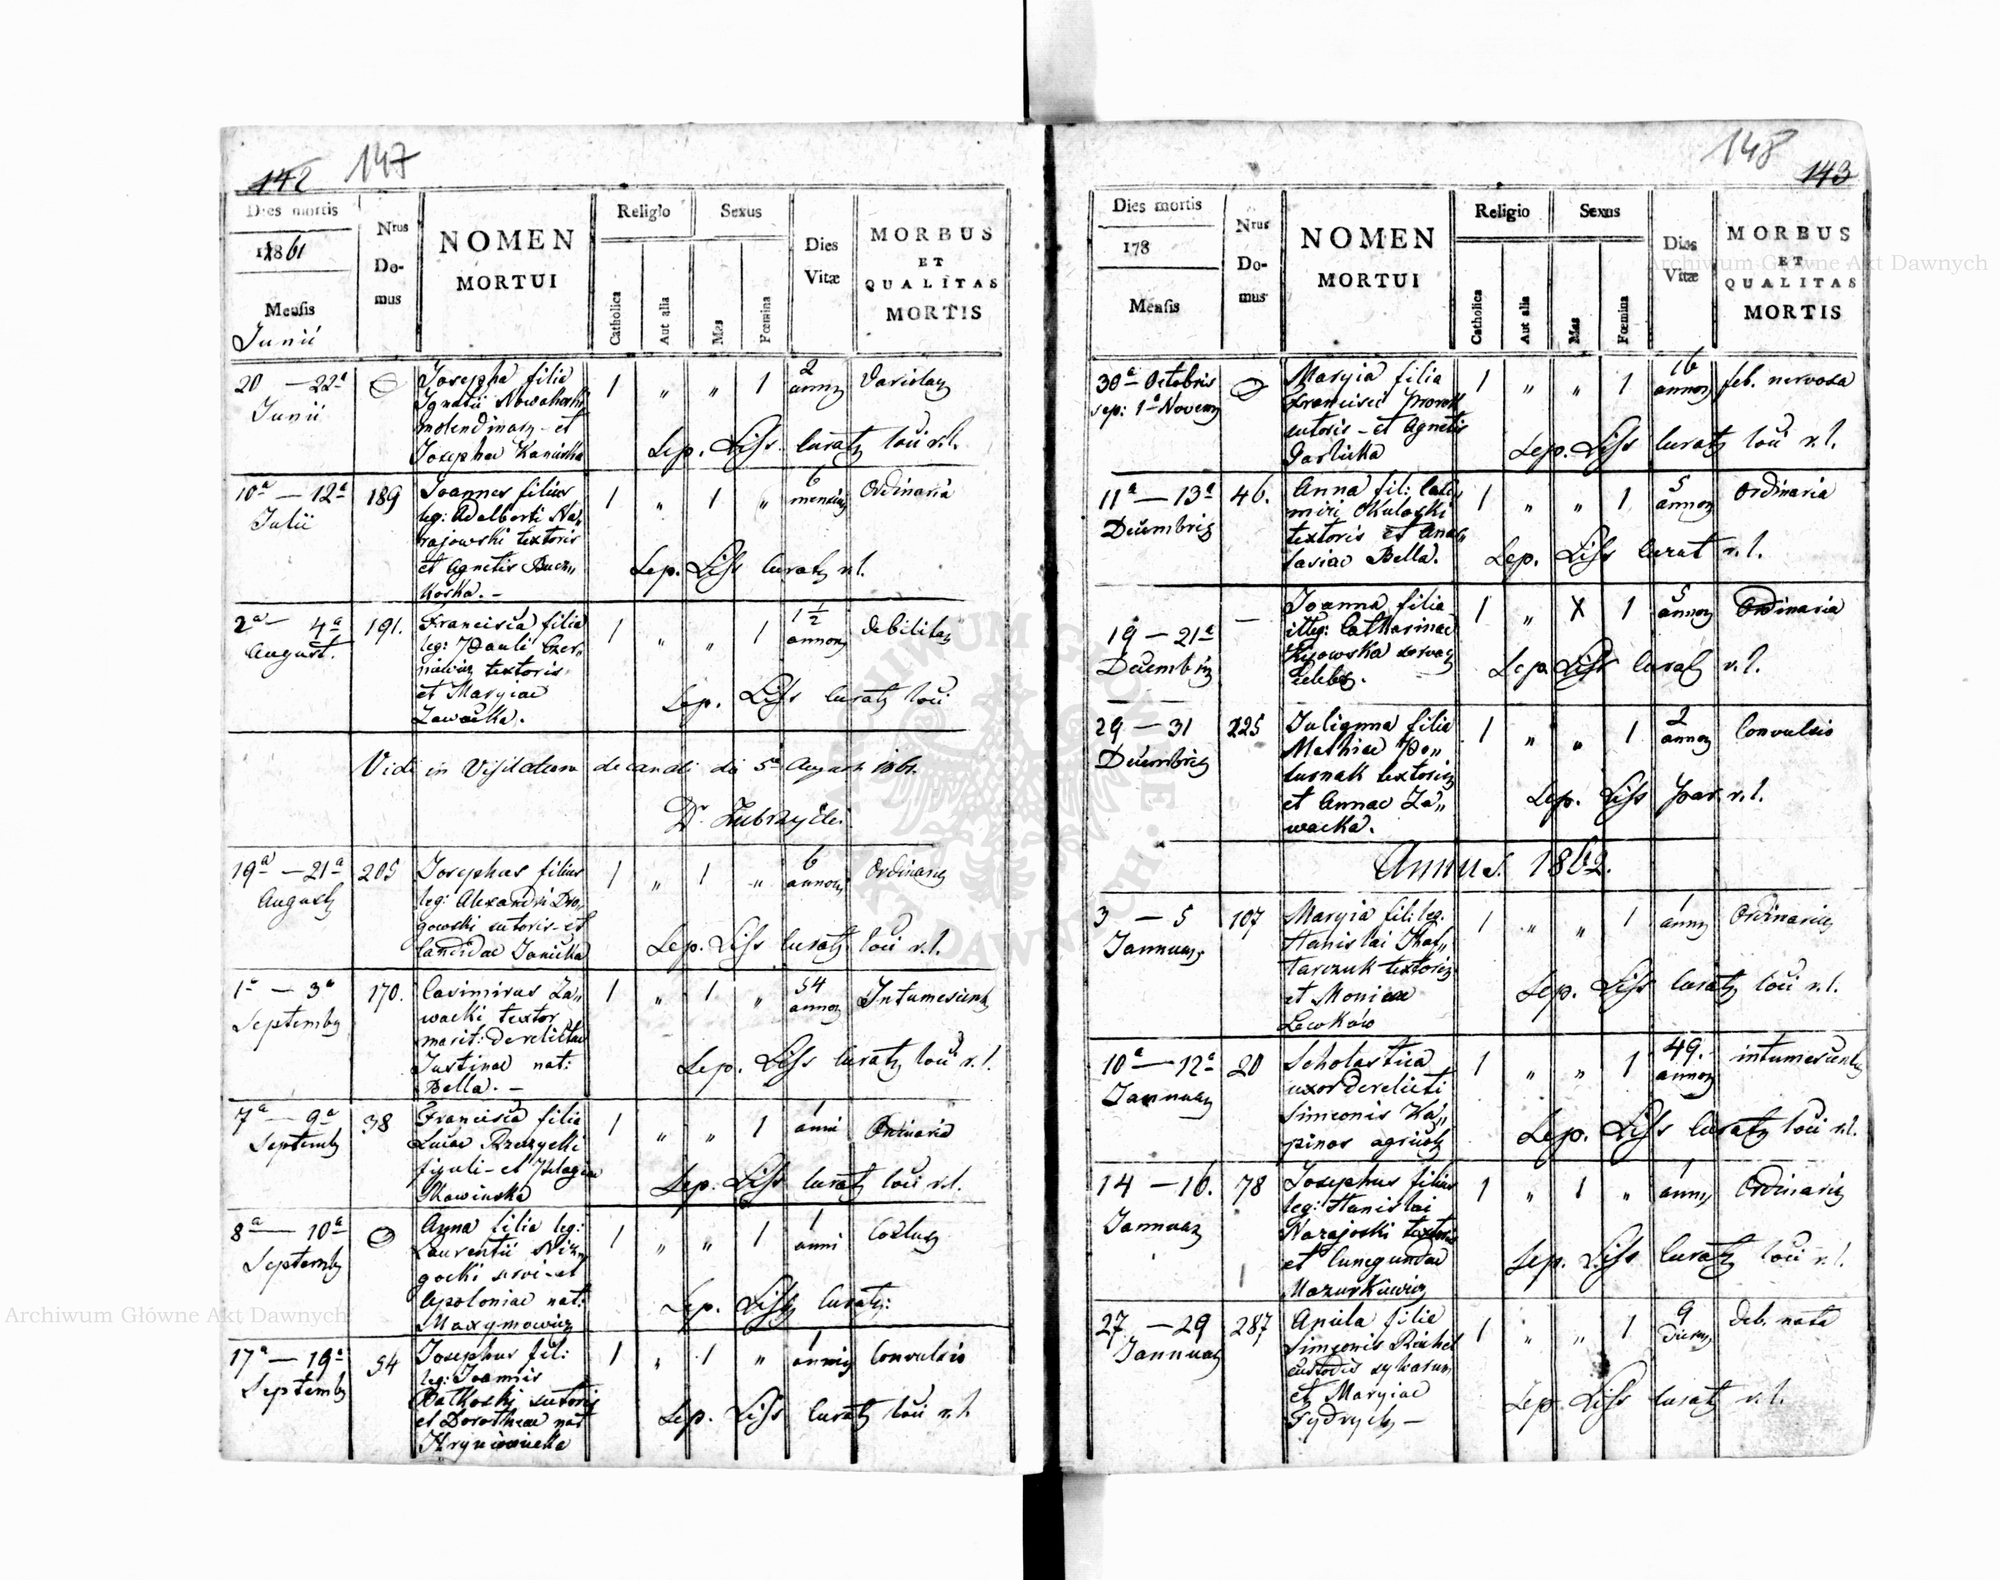 147
142
Dies mortis
1861
Mensis
Junii
Nrus
Do-
mus
NOMEN
MORTUI
Religio
Sexus
Catholica
Aut alia
Mas
Fœmina
Dies
Vitæ
MORBUS
ET
QUALITAS
MORTIS
20 — 22a
Junii
Josepha filia
Ignatii
molendinar. et
Josephae
1 „ „ 1
2
annor
Sep. Liss curatg loci r.l.
10a — 12a
Julii
189
Joannes filius
leg: Adalberti Na„
rajowski textoris
et Agnetis Bucz„
koska. —
1 „ 1 „
6
mensium
Ordinaria
Sep. Liss curatg r.l.
2a — 4a
August.
191.
Francisca filia
leg: Pauli Czer„
textoris
et Maryiae
Zawacka.
1 „ „ 1
1 1/2
annor
debilitas
Sep. Liss curatg loci
Vidi in Visitatione decanali die 5a August 1861.
Dr Zubrzycki
19a — 21a
August
205
Josephus filius
leg: Alexandri Dro„
gowski sutoris - et
Candidae Janicka
1 „ 1 „
6
annor
Ordinaria
Sep. Liss curatg loci r.l.
1a — 3a
Septembr
170.
Casimirus Za„
wacki textor
marit: derelictae
Justinae nat:
Bella. —
1 „ 1 „
54
annor
Intumescentia
Sep. Liss curatg loci r.l.
7a — 9a
Septembr
38
Francisca filia
Lucae
figuli - et Pelagiae
1 „ „ 1
1
anni
Ordinaria
Sep. Liss curatg loci r.l.
8a — 10a
Septembr
Anna filia leg:
Laurentii
gocki servi - et
Apoloniae nat:
Maxymowicz
1 „ „ 1
1
anni
Sep. Liss curatg:
17a — 19a
Septembr
54
Josephus fil:
leg: Joannis
Batkoski sutoris
et Dorotheae nat
1 „ 1 „
Convulsio
Sep. Liss curatg loci r.l.
148
143
Dies mortis
178
Mensis
Nrus
Do-
mus
NOMEN
MORTUI
Religio
Sexus
Catholica
Aut alia
Mas
Fœmina
Dies
Vitæ
MORBUS
ET
QUALITAS
MORTIS
30a Octobris
sep: 1a Novem
Maryia filia
Francisci
sutoris - et Agnetis
Garlicka
1 „ „ 1
16
annor
feb. nervosa
Sep. Liss curatg loci r.l.
11a — 13a
Decembris
46.
Anna fil: Casi„
miri Okuloski
textoris et Anas„
tasiae Bella.
1 „ „ 1
5
annor
Ordinaria
Sep. Liss curat r.l.
19 — 21a
Decembris
—
Joanna filia
illeg: Catharinae
Kijowska servae
celebs.
1 „ X 1
5
annor
Ordinaria
Sep. Liss curatg r.l.
29 — 31
Decembris
225
Julianna filia
Mathiae Po„
turnak textoris
et Annae Za„
wacka.
1 „ „ 1
2
annor
Convulsio
Sep. Liss par. r.l.
Annus. 1862.
3 — 5
Januar.
107
Maryia fil: leg.
Stanislai Chaf„
tarczuk textoris
et Monicae
Lewków
1 „ „ 1
1
anni
Ordinaria
Sep. Liss curatg loci r.l.
10a — 12a
Januar
20
Scholastica
uxor derelicti
Simeonis Ka„
pinos agricol
1 „ „ 1
49.
annor
intumescentia
Sep. Liss curatg loci r.l.
14 — 16.
Januar
78
Josephus filius
leg: Stanislai
Narajoski textoris
et Cunegundae
Mazurkiewicz
1 „ 1 „
1
anni
Ordinaria
Sep. Liss curatg loci r.l.
27 — 29
Januar
287
Aniela filia
Simeonis
custodis sylvarum
et Maryiae
Fydrych —
1 „ „ 1
9
dierum
Deb. nata
Sep. Liss curatg r.l.
Archiwum Główne Akt Dawnych
Archiwum Główne Akt Dawnych
ARCHIWUM GŁÓWNE AKT DAWNYCH